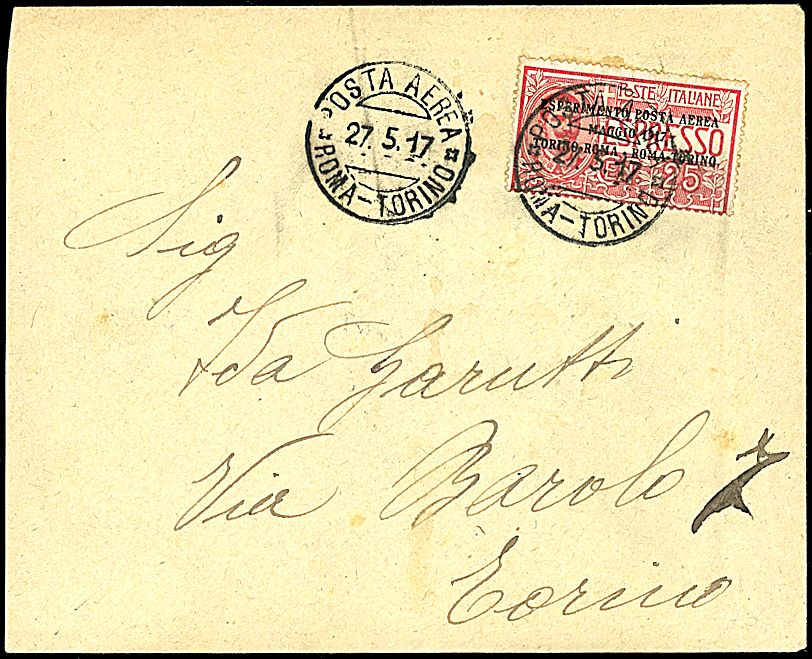 POSTA AEREA
27.5.17
ROMA-TORINO
POSTE ITALIANE
ESPERIMENTO POSTA AEREA
MAGGIO 1917
TORINO-ROMA · ROMA-TORINO.
ESPRESSO
CENT. 25
POSTA AEREA
27.5.17
ROMA-TORINO
Sig
Ida Garutti
Via Barolo 7
Torino